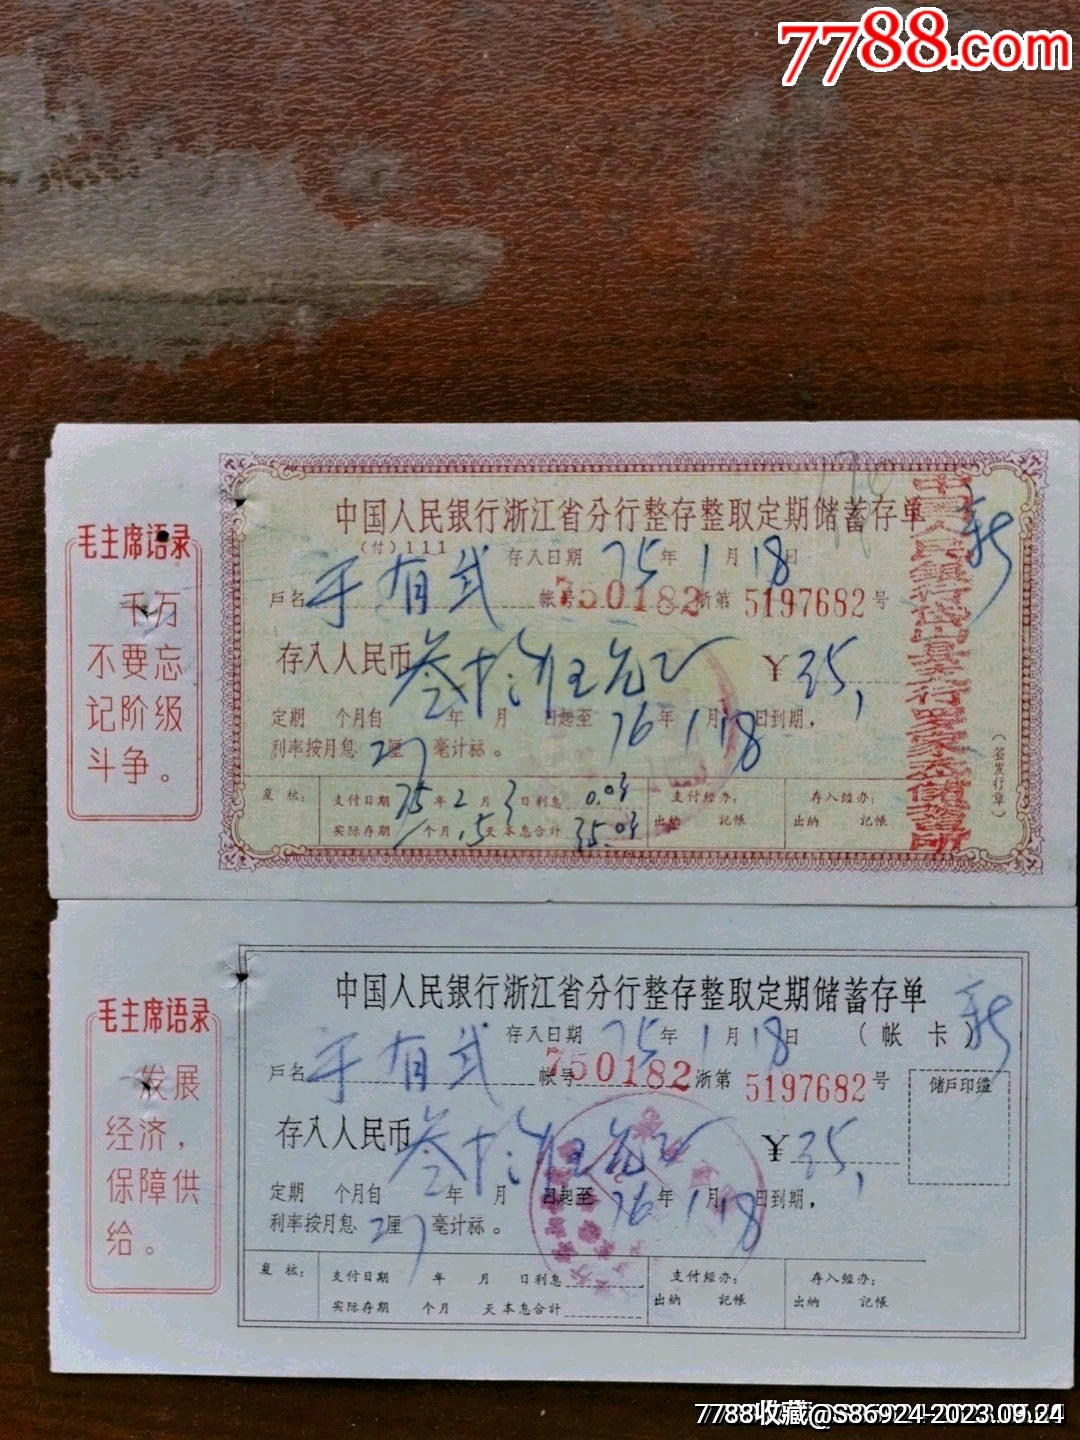 7788.com
毛主席语录
千万
不要忘
记阶级
斗争。
中国人民银行浙江省分行整存整取定期储蓄存单
(付)111
存入日期 75年1月18日
户名 于有武 帐号 750182 浙第 5197682 号
存入人民币 叁十伍元正 ¥ 35,
定期 个月自 年 月 日起至 76年1月18日到期，
利率按月息 27 厘 毫计标。
复核: 支付日期 75年2月3日利息 0.04 支付经办: 存入经办:
实际存期 个月15天本息合计 35.04 出纳 记帐 出纳 记帐
(签发行章)
中国人民银行岱山县支行
毛主席语录
发展
经济，
保障供
给。
中国人民银行浙江省分行整存整取定期储蓄存单
存入日期 75年1月18日 (帐卡)
户名 于有武 帐号 750182 浙第 5197682 号
储户印鉴
存入人民币 叁十伍元正 ¥ 35,
定期 个月自 年 月 日起至 76年1月18日到期，
利率按月息 27 厘 毫计标。
复核: 支付日期 年 月 日利息 支付经办: 存入经办:
实际存期 个月 天本息合计 出纳 记帐 出纳 记帐
7788收藏@S86924-2023.09.24